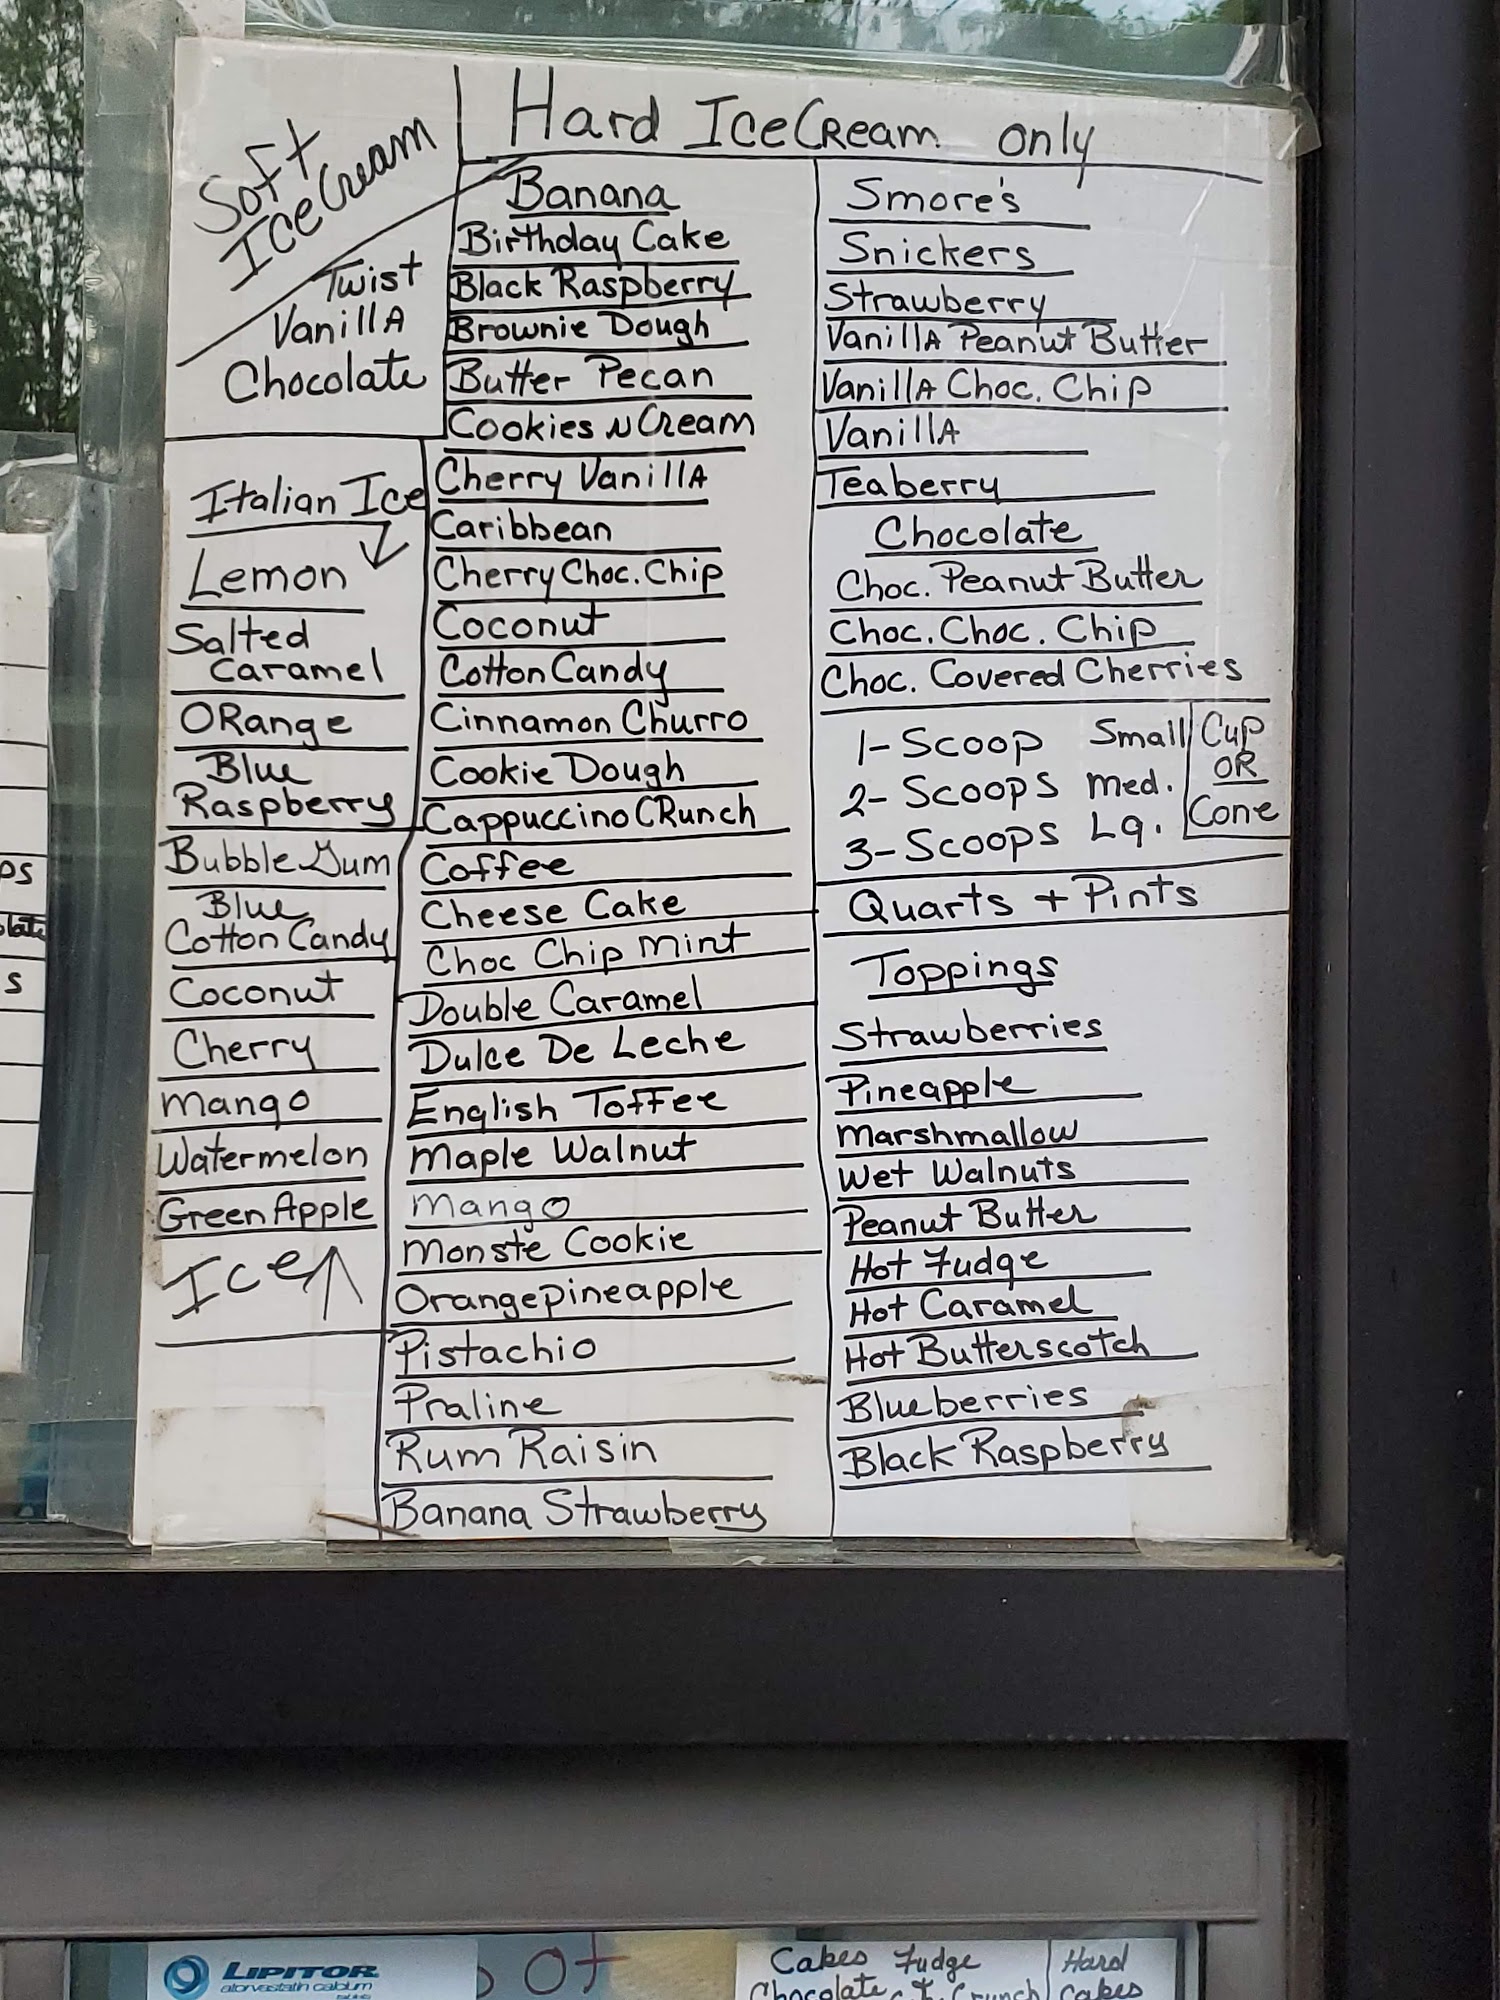 Soft
IceCream
Twist
Vanilla
Chocolate
Italian Ice
Lemon
Salted
Caramel
ORange
Blue
Raspberry
Bubble Gum
Blue
Cotton Candy
Coconut
Cherry
Mango
Watermelon
Green Apple
Ice
Hard IceCream only
Banana
Birthday Cake
Black Raspberry
Brownie Dough
Butter Pecan
Cookies N Cream
Cherry Vanilla
Caribbean
Cherry Choc. Chip
Coconut
Cotton Candy
Cinnamon Churro
Cookie Dough
Cappuccino CRunch
Coffee
Cheese Cake
Choc Chip Mint
Double Caramel
Dulce De Leche
English Toffee
Maple Walnut
Mango
Monste Cookie
Orangepineapple
Pistachio
Praline
Rum Raisin
Banana Strawberry
Smore's
Snickers
Strawberry
Vanilla Peanut Butter
Vanilla Choc. Chip
Vanilla
Teaberry
Chocolate
Choc. Peanut Butter
Choc. Choc. Chip
Choc. Covered Cherries
1- Scoop Small Cup
2- Scoops med. OR
3- Scoops Lg. Cone
Quarts + Pints
Toppings
Strawberries
Pineapple
Marshmallow
Wet Walnuts
Peanut Butter
Hot Fudge
Hot Caramel
Hot Butterscotch
Blueberries
Black Raspberry
LIPITOR
atorvastatin calcium
Cakes Fudge
Chocolate Crunch
Hard
Cakes